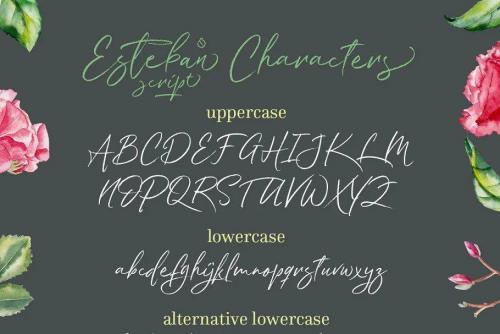 Esteban Characters
script
uppercase
ABCDEFGHIJKLM
NOPQRSTUVWXYZ
lowercase
abcdefghijklmnopqrstuvwxyz
alternative lowercase